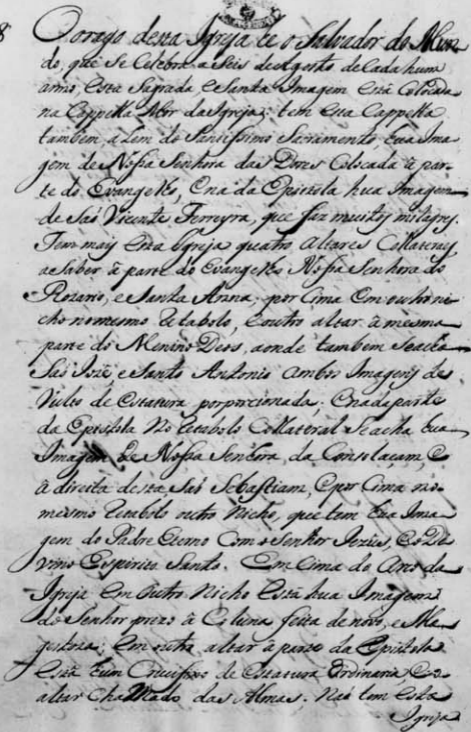 8 O orago desta Igreja he o Salvador do Mun
do, que se Celebra a Seis de Agosto de Cada hum
anno, esta Sagrada e Santa Imagem está Colocada
na Cappella Mor da Igreja: tem esta Cappella
tambem alem do Santissimo Sacramento hua Ima
gem de Nossa Senhora das Dores Colocada á par
te do Evangelho, e na da Epistola hua Imagem
de Saõ Vicente Ferreyra, que faz muitos milagres.
Tem mais esta Igreja quatro Altares Collateraes
a Saber á parte do Evangelho Nossa Senhora do
Rozario, e Santa Anna; por Cima em outro ni
cho no mesmo Retabolo, e outro altar á mesma
parte do Menino Deos, aonde tambem se acha
Saõ Joze e Santo Antonio ambos Imagens de
Vulto de estatura porporcionada. E na da parte
da Epistola No Retabolo Collateral Se acha hua
Imagem de Nossa Senhora da Consolaçam, e
á direita desta, Saõ Sebastiam, e por Cima no
mesmo Retabolo outro Nicho, que tem hua Ima
gem do Padre Eterno Com o Senhor Jezus, e o De
vino Espirito Santo. Em Cima do Arco da
Igreja em outro Nicho está hua Imagem
do Senhor prezo á Coluna feita de novo, e Ma
gestoza; em outro altar á parte da Epistola
está hum Crucifixo de Estatura Ordinaria e o
altar Chamado das Almas. Naõ tem esta
Igreja